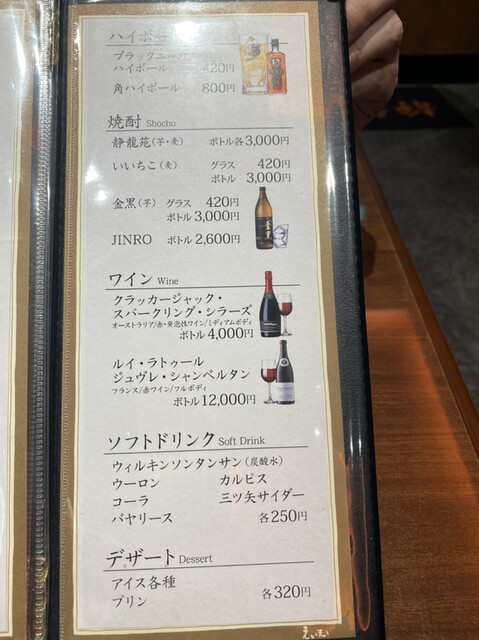 ハイボー
ブラックニッカ
ハイボール 420円
角ハイボール 800円
焼酎 Shochu
静龍苑(芋・麦) ボトル各3,000円
いいちこ(麦) グラス 420円
ボトル 3,000円
金黒(芋) グラス 420円
ボトル 3,000円
JINRO ボトル 2,600円
ワイン Wine
クラッカージャック・
スパークリング・シラーズ
オーストラリア/赤・発泡性ワイン/ミディアムボディ
ボトル 4,000円
ルイ・ラトゥール
ジュヴレ・シャンベルタン
フランス/赤ワイン/フルボディ
ボトル 12,000円
ソフトドリンク Soft Drink
ウィルキンソンタンサン(炭酸水)
ウーロン カルピス
コーラ 三ツ矢サイダー
バヤリース 各250円
デザート Dessert
アイス各種
プリン 各320円